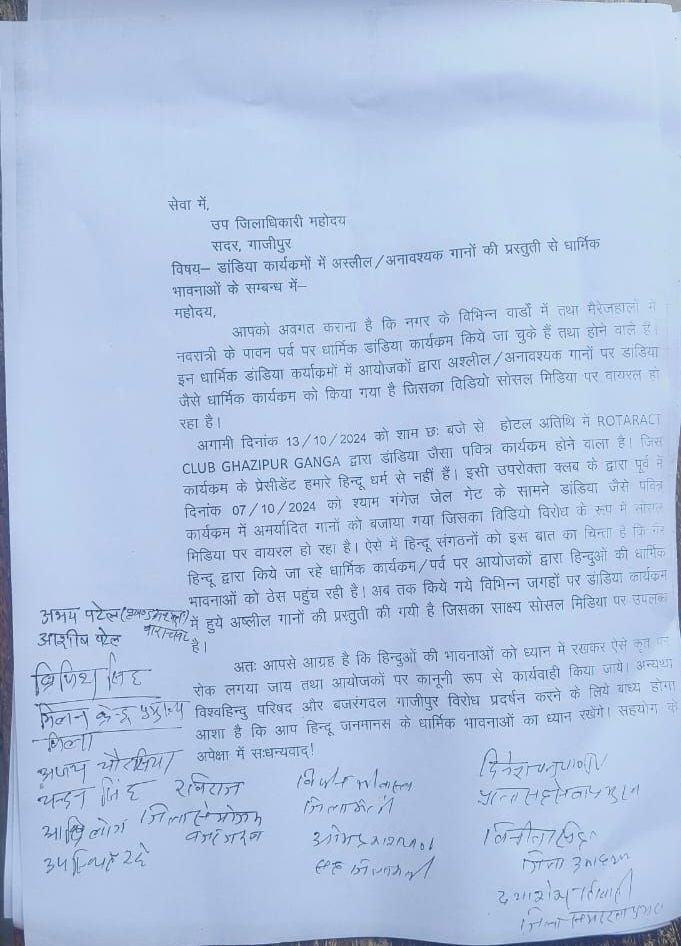 सेवा में,
उप जिलाधिकारी महोदय
सदर, गाजीपुर
विषय– डांडिया कार्यकमों में अस्लील/अनावश्यक गानों की प्रस्तुती से धार्मिक
भावनाओं के सम्बन्ध में–
महोदय,
आपको अवगत कराना है कि नगर के विभिन्न वार्डो में तथा मैरेजहालों में
नवरात्री के पावन पर्व पर धार्मिक डांडिया कार्यकम किये जा चुके हैं तथा होने वाले हैं।
इन धार्मिक डांडिया कर्याकमों में आयोजकों द्वारा अश्लील/अनावश्यक गानों पर डांडिया
जैसे धार्मिक कार्यकम को किया गया है जिसका विडियो सोसल मिडिया पर वायरल हो
रहा है।
अगामी दिनांक 13/10/2024 को शाम छः बजे से होटल अतिथि में ROTARACT
CLUB GHAZIPUR GANGA द्वारा डांडिया जैसा पवित्र कार्यकम होने वाला है। जिस
कार्यकम के प्रेसीडेंट हमारे हिन्दू धर्म से नहीं हैं। इसी उपरोक्ता क्लब के द्वारा पूर्व में
दिनांक 07/10/2024 को श्याम गंगेज जेल गेट के सामने डांडिया जैसे पवित्र
कार्यकम में अमर्यादित गानों को बजाया गया जिसका विडियो विरोध के रूप में सोसल
मिडिया पर वायरल हो रहा है। ऐसे में हिन्दू संगठनों को इस बात का चिन्ता है कि गैर
हिन्दू द्वारा किये जा रहे धार्मिक कार्यकम/पर्व पर आयोजकों द्वारा हिन्दुओं की धार्मिक
भावनाओं को ठेस पहुंच रही है। अब तक किये गये विभिन्न जगहों पर डांडिया कार्यकम
में हुये अष्लील गानों की प्रस्तुती की गयी है जिसका साक्ष्य सोसल मिडिया पर उपलब्ध
है।
अतः आपसे आग्रह है कि हिन्दुओं की भावनाओं को ध्यान में रखकर ऐसे कृत पर
रोक लगया जाय तथा आयोजकों पर कानूनी रूप से कार्यवाही किया जाये। अन्यथा
विश्वहिन्दु परिषद और बजरंगदल गाजीपुर विरोध प्रदर्षन करने के लिये बाध्य होगा
आशा है कि आप हिन्दू जनमानस के धार्मिक भावनाओं का ध्यान रखेंगे। सहयोग के
अपेक्षा में सःधन्यवाद!
अभय पटेल
आशीष पटेल
सिंह
मिलन केन्द्र प्रमुख
जिला
अजय चौरसिया
चन्दन सिंह
रविराज
जिला संयोजक
बजरंगदल
लोग
उपस्थित रहे
जिलामंत्री
सह जिलामंत्री
जिला उपाध्यक्ष